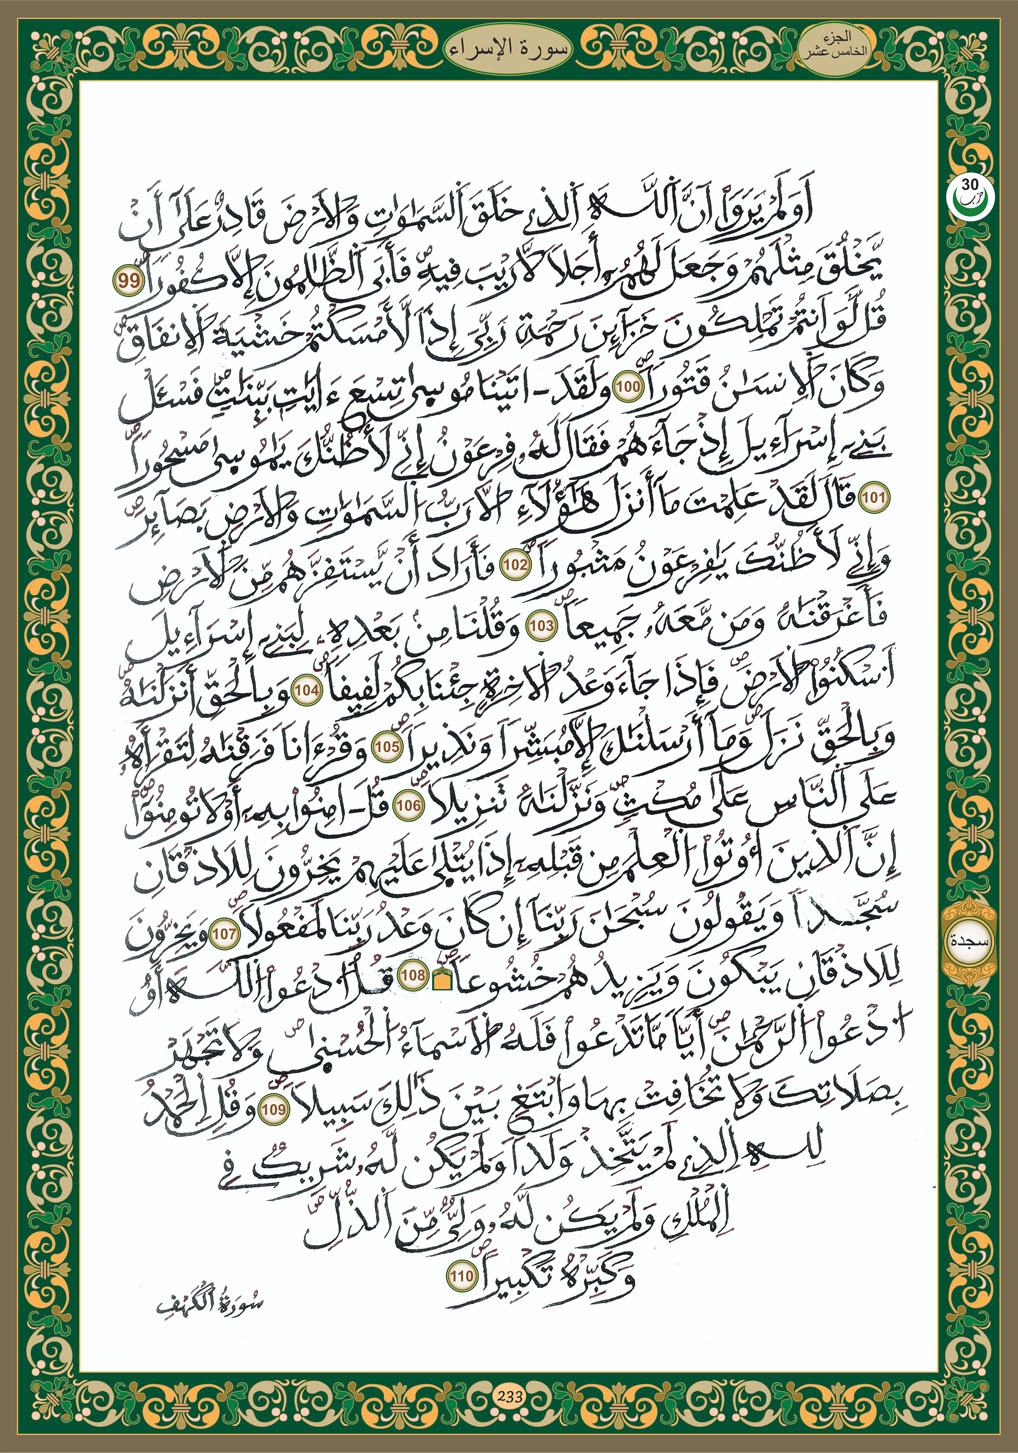 سورة الإسراء
الجزء
الخامس عشر
30
حزب
أَوَلَمْ يَرَوَاْ اَنَّ اَللَّهَ اَلذِے خَلَقَ اَلسَّمَٰوَٰتِ وَالَارْضَ قَادِرٌ عَلَىٰٓ أَنْ
يَّخْلُقَ مِثْلَهُمْ وَجَعَلَ لَهُمُۥٓ أَجَلاٗ لَّا رَيْبَ فِيهِ فَأَبَى اَلظَّٰلِمُونَ إِلَّا كُفُوراٗ 99
قُل لَّوَ اَنتُمْ تَمْلِكُونَ خَزَآئِنَ رَحْمَةِ رَبِّيَ إِذاٗ لَّأَمْسَكْتُمْ خَشْيَةَ اَلِانفَاقِ صـ
وَكَانَ اَلِانسَٰنُ قَتُوراٗ صـ 100 وَلَقَدَ اٰتَيْنَا مُوسَىٰ تِسْعَ ءَايَٰتِۢ بَيِّنَٰتٖ صـ فَسْـَٔلْ
بَنِےٓ إِسْرَآءِيلَ إِذْ جَآءَهُمْ فَقَالَ لَهُۥ فِرْعَوْنُ إِنِّے لَأَظُنُّكَ يَٰمُوسَىٰ مَسْحُوراٗ صـ
101 قَالَ لَقَدْ عَلِمْتَ مَآ أَنزَلَ هَٰٓؤُلَآءِ اِلَّا رَبُّ اُلسَّمَٰوَٰتِ وَالَارْضِ بَصَآئِرَ صـ
وَإِنِّے لَأَظُنُّكَ يَٰفِرْعَوْنُ مَثْبُوراٗ صـ 102 فَأَرَادَ أَنْ يَّسْتَفِزَّهُم مِّنَ اَلَارْضِ
فَأَغْرَقْنَٰهُ وَمَن مَّعَهُۥ جَمِيعاٗ صـ 103 وَقُلْنَا مِنۢ بَعْدِهِۦ لِبَنِےٓ إِسْرَآءِيلَ
اَسْكُنُواْ اُلَارْضَ صـ فَإِذَا جَآءَ وَعْدُ اُلَاخِرَةِ جِئْنَا بِكُمْ لَفِيفاٗ صـ 104 وَبِالْحَقِّ أَنزَلْنَٰهُ صـ
وَبِالْحَقِّ نَزَلَ صـ وَمَآ أَرْسَلْنَٰكَ إِلَّا مُبَشِّراٗ وَنَذِيراٗ صـ 105 وَقُرْءَاناٗ فَرَقْنَٰهُ لِتَقْرَأَهُۥ
عَلَى اَلنَّاسِ عَلَىٰ مُكْثٖ صـ وَنَزَّلْنَٰهُ تَنزِيلاٗ صـ 106 قُلَ اٰمِنُواْ بِهِۦٓ أَوْ لَا تُومِنُوٓاْ صـ
إِنَّ اَلذِينَ أُوتُواْ اُلْعِلْمَ مِن قَبْلِهِۦٓ إِذَا يُتْلَىٰ عَلَيْهِمْ يَخِرُّونَ لِلَاذْقَانِ
سُجَّداٗ وَيَقُولُونَ سُبْحَٰنَ رَبِّنَآ إِن كَانَ وَعْدُ رَبِّنَا لَمَفْعُولاٗ صـ 107 وَيَخِرُّونَ
سجدة
لِلَاذْقَانِ يَبْكُونَ وَيَزِيدُهُمْ خُشُوعاٗ صـ 108 قُلُ اُدْعُواْ اُللَّهَ أَوُ
اُدْعُواْ اُلرَّحْمَٰنَ صـ أَيّاٗ مَّا تَدْعُواْ فَلَهُ اُلَاسْمَآءُ اُلْحُسْنَىٰ صـ وَلَا تَجْهَرْ
بِصَلَاتِكَ وَلَا تُخَافِتْ بِهَا وَابْتَغِ بَيْنَ ذَٰلِكَ سَبِيلاٗ صـ 109 وَقُلِ اِلْحَمْدُ
لِلهِ اِلذِے لَمْ يَتَّخِذْ وَلَداٗ وَلَمْ يَكُن لَّهُۥ شَرِيكٞ فِے
اِلْمُلْكِ وَلَمْ يَكُن لَّهُۥ وَلِيّٞ مِّنَ اَلذُّلِّ صـ
وَكَبِّرْهُ تَكْبِيراٗ صـ 110
سُورَةُ اُلْكَهْفِ
233